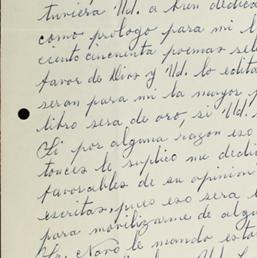 tuviera Ud. a bien dedica
como prologo para mi l
ciento cincuenta poemas sel
favor de Dios y Ud. lo edita
seran para mi la mayor p
libro sera de oro, si Ud.
Si por alguna razon eso
tonces le suplico me dedi
favorables de su opinion
escritas, pues eso sera
para movilizarme de algu
Novo le mando esta